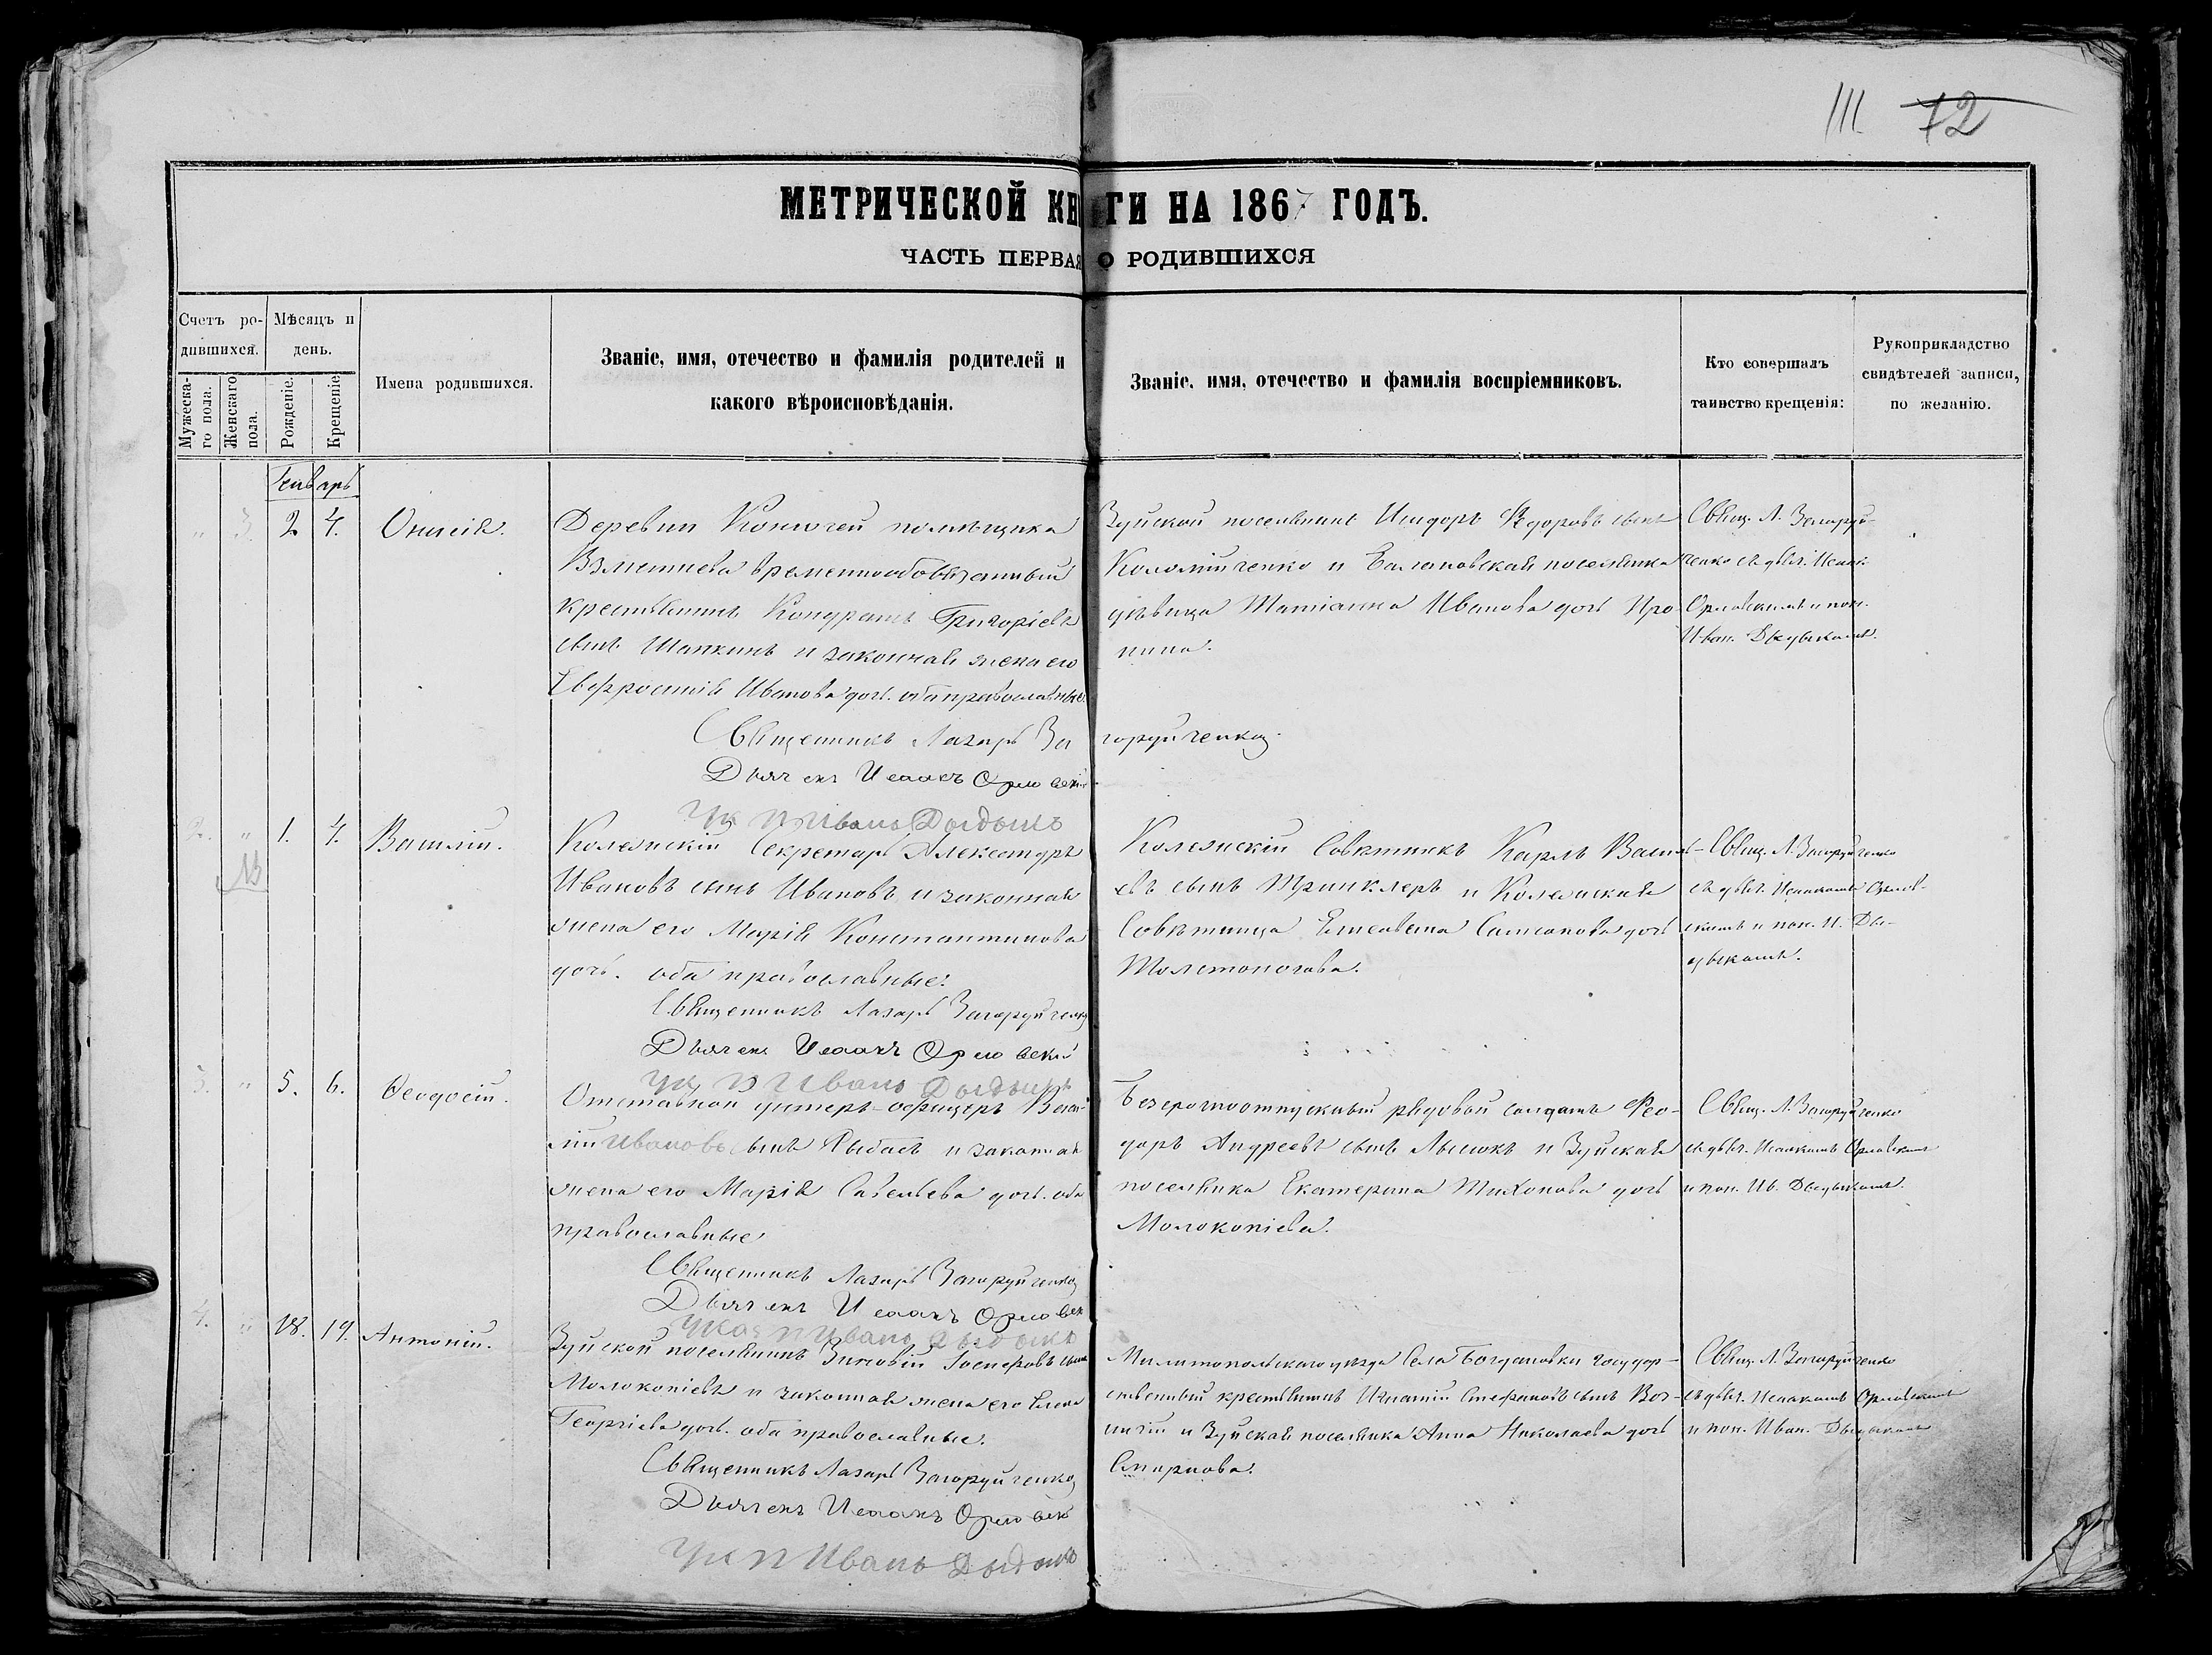 III 72
МЕТРИЧЕСКОЙ КНИГИ НА 1867 ГОДЪ.
ЧАСТЬ ПЕРВАЯ О РОДИВШИХСЯ
Счетъ ро-
дившихся.
Мужеска-
го пола.
Женскаго
пола.
Мѣсяцъ и
день.
Рожденіе.
Крещеніе
Имена родившихся.
Званіе, имя, отечество и фамилія родителей и
какого вѣроисповѣданія.
Званіе, имя, отечество и фамилія воспріемниковъ.
Кто совершалъ
таинство крещенія:
Рукоприкладство
свидѣтелей записи,
по желанію.
Генварь
" 3. 2. 4.
Деревни помѣщика
временнообовязанный
крестьянинъ Кондратъ Григоріевъ
сынъ Шапкинъ и законная жена его
Евфросинія Иванова дочь. оба православные.
Священникъ Лазарь Загоруйченко
Дьячекъ Исаакъ Орловскій
Ук П Иванъ Дыдыкъ
Зуйской поселянинъ Исидоръ Федоровъ сынъ
Коломійченко и поселянка
дѣвица Татіанна Иванова дочь Про-
нина.
Свящ. Л. Загоруй-
ченко съ дьяч. Исаак.
Орловскимъ и пон.
Иван. Дыдыкомъ.
2. " 1. 4. Василій.
Колежскій Секретарь Александръ
Ивановъ сынъ Ивановъ и законная
жена его Марія Константинова
дочь. оба православные.
Священникъ Лазарь Загоруйченко
Дьячекъ Исаакъ Орловскій
Ук П Иванъ Дыдыкъ
Колежскій Совѣтникъ Карлъ Васил-
евъ сынъ Тринклеръ и Колежская
Совѣтница Елисавета Самсонова дочь
Толстоногова.
Свящ. Л. Загоруйченко
съ дьяч. Исаакомъ Орлов-
скимъ и пон. И. Ды-
дыкомъ.
3. " 5. 6. Ѳеодосій.
Отставной унтеръ-офицеръ Васи-
лій Ивановъ сынъ Рыбасъ и законная
жена его Марія Савельева дочь. оба
православные
Священникъ Лазарь Загоруйченко
Дьячекъ Исаакъ Орловск
Указ П Иванъ Дыдыкъ
Безсрочноотпускный рядовой солдатъ Фео-
доръ Андреевъ сынъ и Зуйская
поселянка Екатерина Тихонова дочь
Молокопіева.
Свящ. Л. Загоруйченко
съ дьяч. Исаакомъ Орловскимъ
и пон. Ив. Дыдыкомъ.
4. " 18. 19. Антоній.
Зуйской поселянинъ Зиновій сынъ
Молокопіевъ и законная жена его Елена
Георгіева дочь. оба православные.
Священникъ Лазарь Загоруйченко
Дьячекъ Исаакъ Орловск
Ук П Иванъ Дыдыкъ
Милитопольскаго уѣзда села Богдановки государ-
ственный крестьянинъ Игнатій Стефановъ сынъ
и Зуйская поселянка Анна Николаева дочь
Смирнова.
Свящ. Л. Загоруйченко
съ дьяч. Исаакомъ Орловскимъ
и пон. Иван. Дыдыкомъ